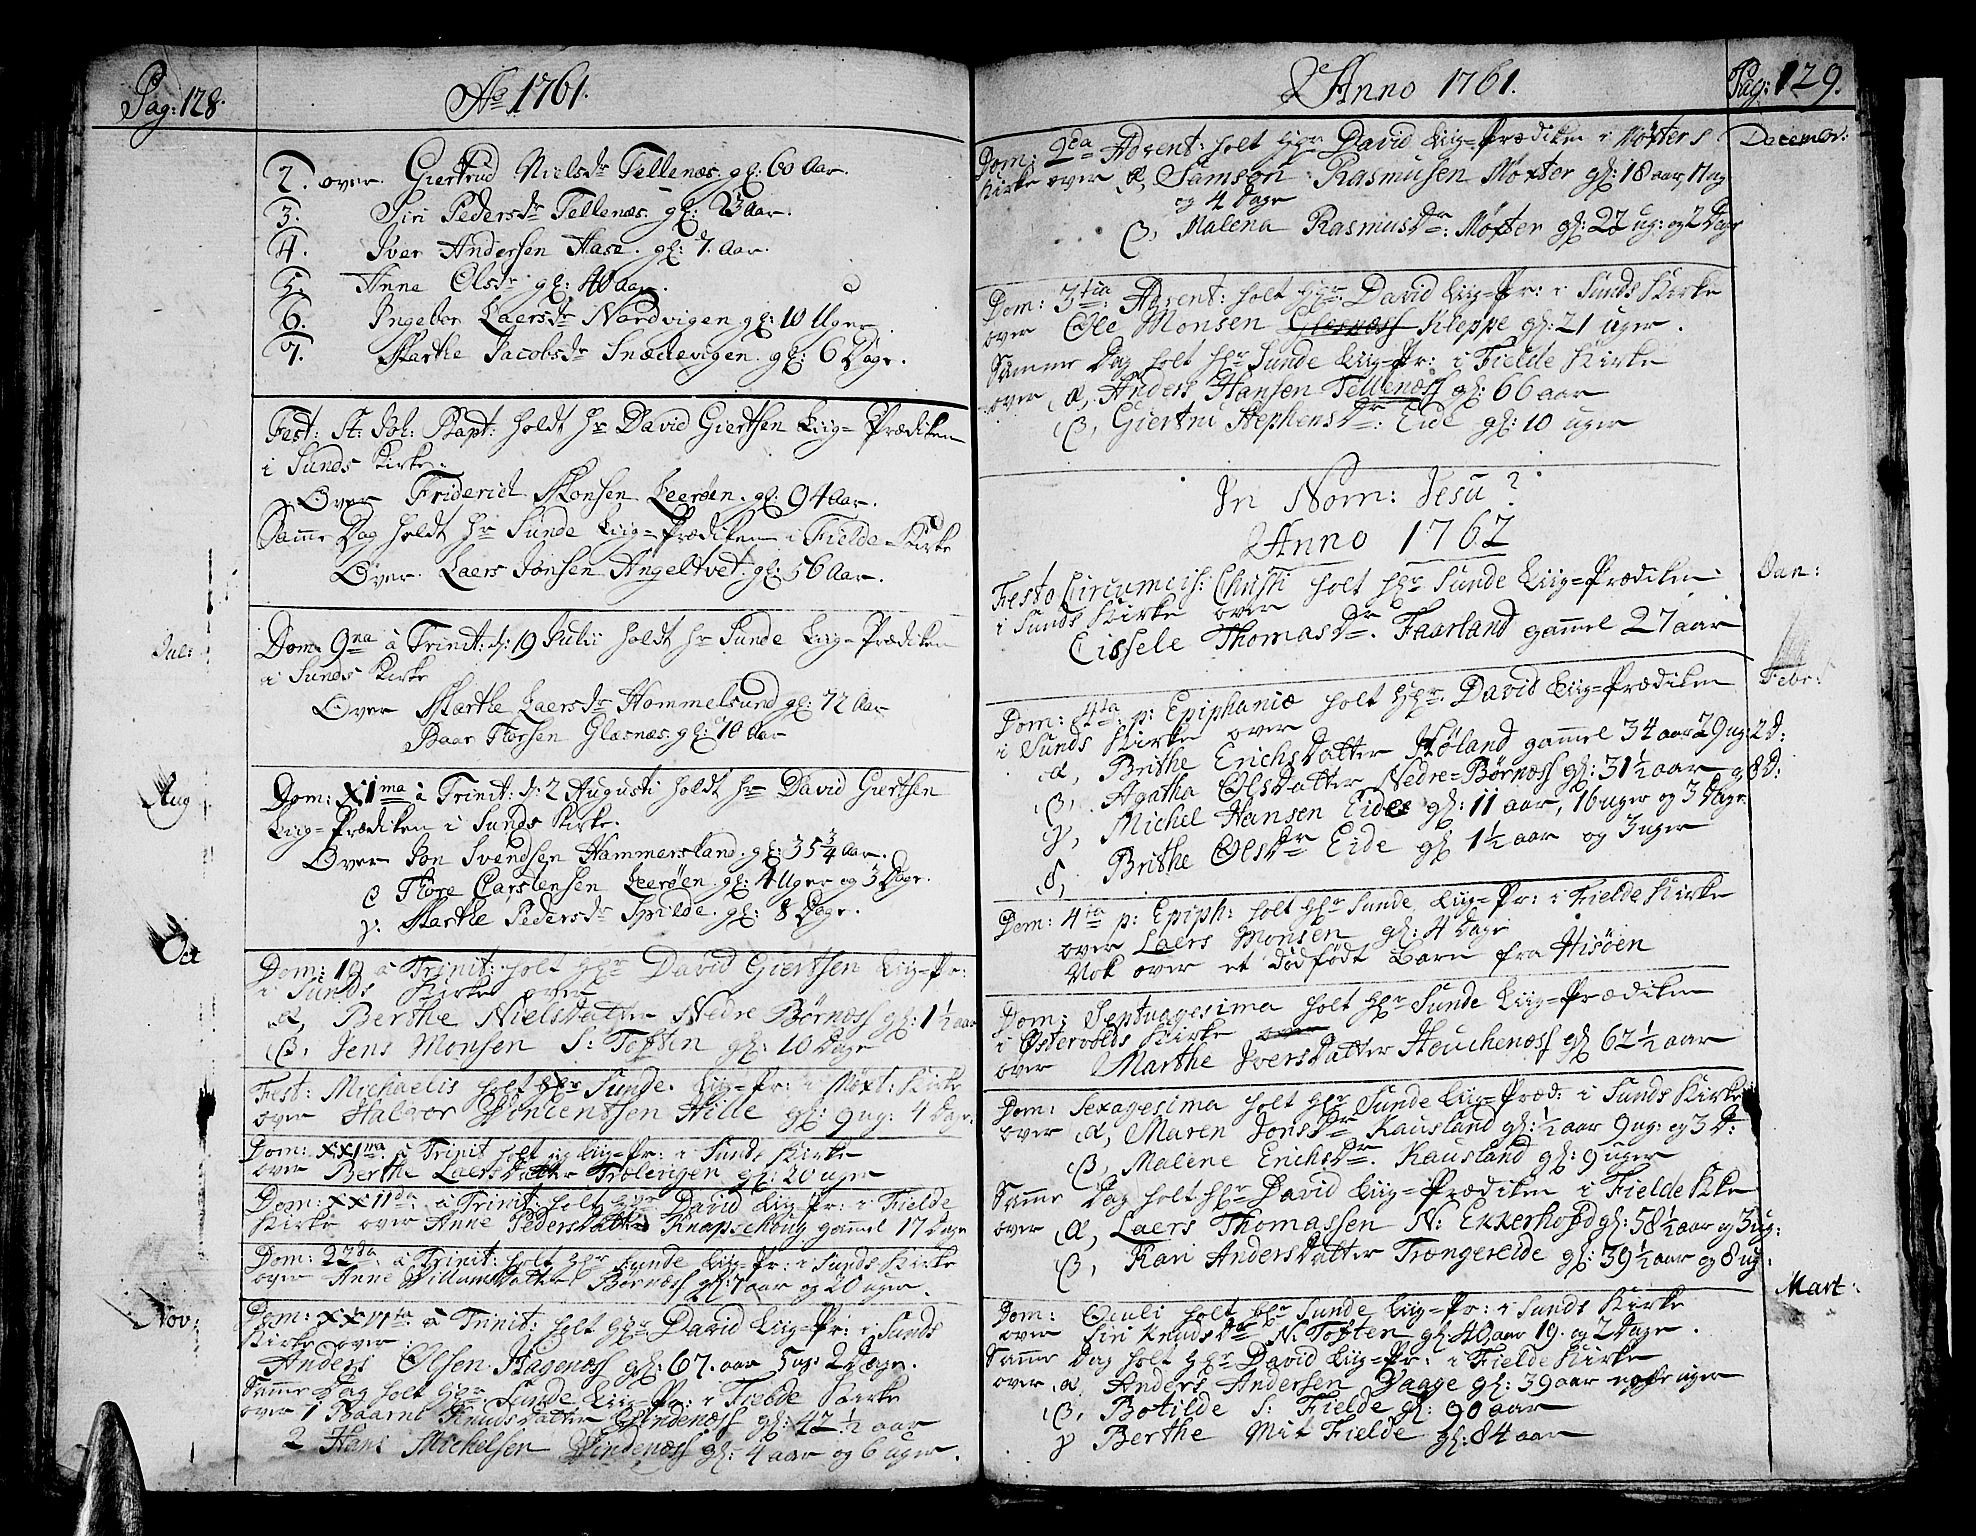 Pag: 128.
Ao 1761.
2. over Giertrud Nielsdr Tellenæs. gl: 60 Aar.
3. Siri Pedersdr Tellenæs. gl: 23 Aar.
4. Iver Andersen Aase. gl: 7. Aar.
5. Anna Olsdr gl: 40 Aar.
6. Ingebor Laersdr Nordvigen gl: 10 Uger.
7. Marthe Jacobsdr Snædevigen. gl: 6 Dage.
Fest: St: Joh: Bapt: holdt Hr David Giertsen Liig=Prædiken
i Sunds Kirke.
Over Friderich Monsen Leerøen. gl: 94 Aar.
Samme Dag holdt Hr Sunde Liig=Prædiken i Fielde-Kirke
Over. Laers Jonsen Angeltvet. gl: 56 Aar.
Jul:
Dom: 9na à Trinit: d: 19 Julii holdt Hr Sunde Liig=Prædiken
i Sunds Kirke
Over Marthe Laersdr Hommelsund gl: 72 Aar
Baar Thorsen Glæsnæs. gl: 70 Aar
Aug
Dom: XIma à Trinit: d: 2 Augusti holdt Hr David Giertsen
Liig=Prædiken i Sunds Kirke.
Over Jon Svendsen Hammersland. gl: 35 3/4 Aar.
Thore Carstensen Leerøen gl: 4 Uger og 3 Dage.
γ. Marthe Pedersdr Spilde. gl: 8 Dage.
Oct
Dom: 19 à Trinit: holt Hr David Giertsen Liig=Pr:
i Sunds Kirke over
α, Berthe Nielsdatter Nedre Børnæss gl: 1 1/2 aar
β, Jens Monsen S: Toften gl: 10 Dage
Fest: Michaelis holt Hr Sunde Liig=Pr: i Møxt: Kirke
over Halvor Vincentsen Hille gl: 9 ug: 4 Dage.
Dom: XXIma à Trinit holt Liig=Pr: i Sunds Kirke
over Berthe Laersdatter Trølevigen gl: 20 uger
Dom: XXIIda: à Trinit: holt Hr David Liig=Pr: i Fielde
Kirke over Anne Pedersdatter Knapschoug gammel 17 Dage
Dom: 22da: à Trinit: holt Hr Sunde Liig=Pr: i Sunds Kirke
over Anne Willumsdatter Børnæss gl: 1 aar og 20 uger.
Nov:
Dom: à Trinit: holt Hr David Liig=Pr: i Sunds
Kirke over
Anders Olsen Hagenæss gl: 67. aar 5 ug: 2 Dage.
Samme Dag holt Hr Sunde Liig=Pr: i Fielde Kirke
over 1 Baarni Knudsdatter Vindenæss gl: 42 1/2 aar
2 Hans Michelsen Vindenæss gl: 4 aar og 6 uger.
Anno 1761.
Pag: 129.
Decembr:
Dom: 2da Advent: holt Hr David Liig=Prædiken i Møxters
Kirke over α, Samson Rasmusen Møxter gl: 18 aar, 17 ug
og 4 Dage
β, Malena Rasmusdr: Møxter gl: 22 ug: og 2 Dage
Dom: 3tia Advent: holt Hr: David Liig=Pr: i Sunds Kirke
over Ole Monsen Glesnæss Kleppe gl: 21 uger.
Samme Dag holt Hr Sunde Liig=Pr: i Fielde Kirke
over α, Anders Hansen Tellenæss gl: 66 aar
β, Giertru Stephensdr: Eide gl: 10 uger
In Nom: Jesu
Anno 1762
Jan:
Festo Circumcis: Christi holt Hr Sunde Liig=Prædiken
i Sunds Kirke over
Cissele Thomasdr. Faarland gammel 27 aar
Febr:
Dom: 4ta p: Epiphaniæ holt Hr. David Liig=Prædiken
i Sunds Kirke over
α, Brithe Erichsdatter Høland gammel 34 aar 29 ug. 2 d:
β, Agatha Olsdatter Nedre=Børnæss gl: 31 1/2 aar og 8 d:
γ, Michel Hansen Eide gl: 11 aar, 16 uger og 3 Dage
δ, Brithe Olsdr Eide gl 1 1/2 aar og 3 uger
Dom: 4ta p: Epiph: holt Hr Sunde Liig=Pr: i Fielde Kirke
over Laers Monsen gl: 4 Dage
Nok over et dødfødt Barn fra Hisøen
Dom: Septuagesima holt Hr Sunde Liig=Prædiken
i Østervolds Kirke over
over Marthe Iversdatter Heuchenæss gl 62 1/2 aar
Dom: Sexagesima holt Hr Sunde Liig=Præd: i Sunds Kirke
over α, Maren Jonsdr Kausland gl: 1/2 aar 9 ug: og 3 D:
β, Malene Erichsdr. Kausland gl: 9 uger
Samme Dag holt Hr David Liig=Prædiken i Fielde Kke
over α, Laers Thomassen N: Ekkerhofd gl: 58 1/2 aar og 3 ug:
β, Kari Andersdatter Trængereide gl: 39 1/2 aar og 8 ug.
Mart:
Dom: Oculi holt Hr Sunde Liig=Pr: i Sunds Kirke
over Siri Knudsdr N: Toften gl: 40 aar 19. og 2 Dage.
Samme Dag holt Hr David Liig=Pr: i Fielde Kirke
over α Anders Andersen Vaage gl: 39 aar uger
β, Botilde S: Fielde gl: 90 aar
γ Berthe Mit Fielde gl: 84 aar